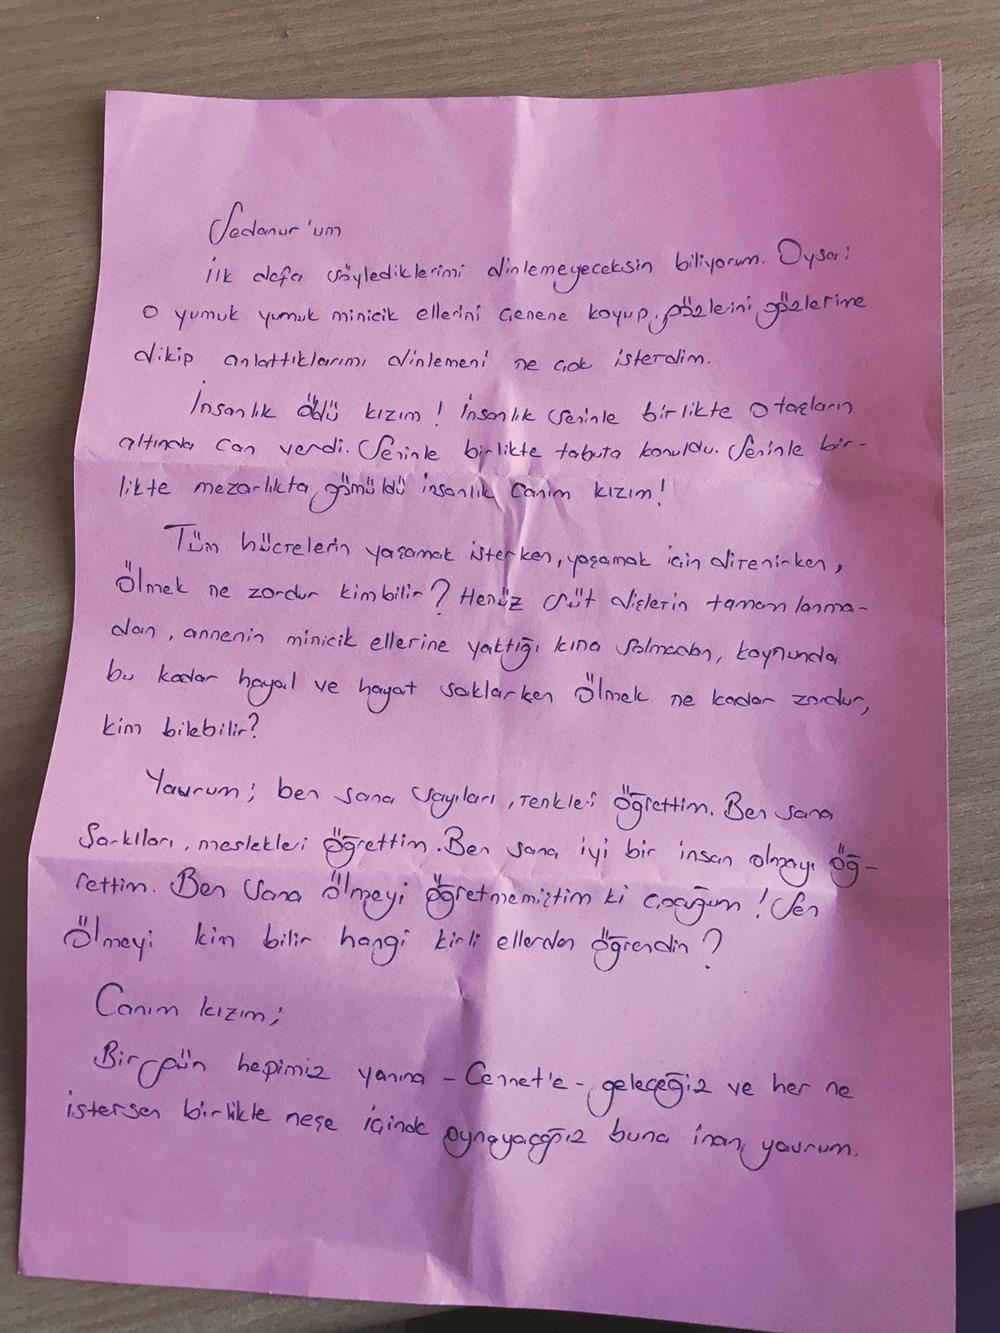 Sedanur'um
ilk defa söylediklerimi dinlemeyeceksin biliyorum. Oysa;
o yumuk yumuk minicik ellerini çenene koyup, gözlerini gözlerime
dikip anlattıklarımı dinlemeni ne çok isterdim.
İnsanlık öldü kızım! İnsanlık seninle birlikte o taşların
altında can verdi. Seninle birlikte tabuta konuldu. Seninle bir-
likte mezarlıkta gömüldü insanlık canım kızım!
Tüm hücrelerin yaşamak isterken, yaşamak için direnirken,
ölmek ne zordur kimbilir? Henüz süt dişlerin tamamlanma-
dan, annenin minicik ellerine yaktığı kına solmadan, koynunda
bu kadar hayal ve hayat saklarken ölmek ne kadar zordur,
kim bilebilir?
Yavrum; ben sana sayıları, renkleri öğrettim. Ben sana
şarkıları, meslekleri öğrettim. Ben sana iyi bir insan olmayı öğ-
rettim. Ben sana ölmeyi öğretmemiştim ki çocuğum! Sen
ölmeyi kim bilir hangi kirli ellerden öğrendin?
Canım kızım;
Birgün hepimiz yanına - Cennet'e - geleceğiz ve her ne
istersen birlikte neşe içinde oynayacağız buna inan yavrum.